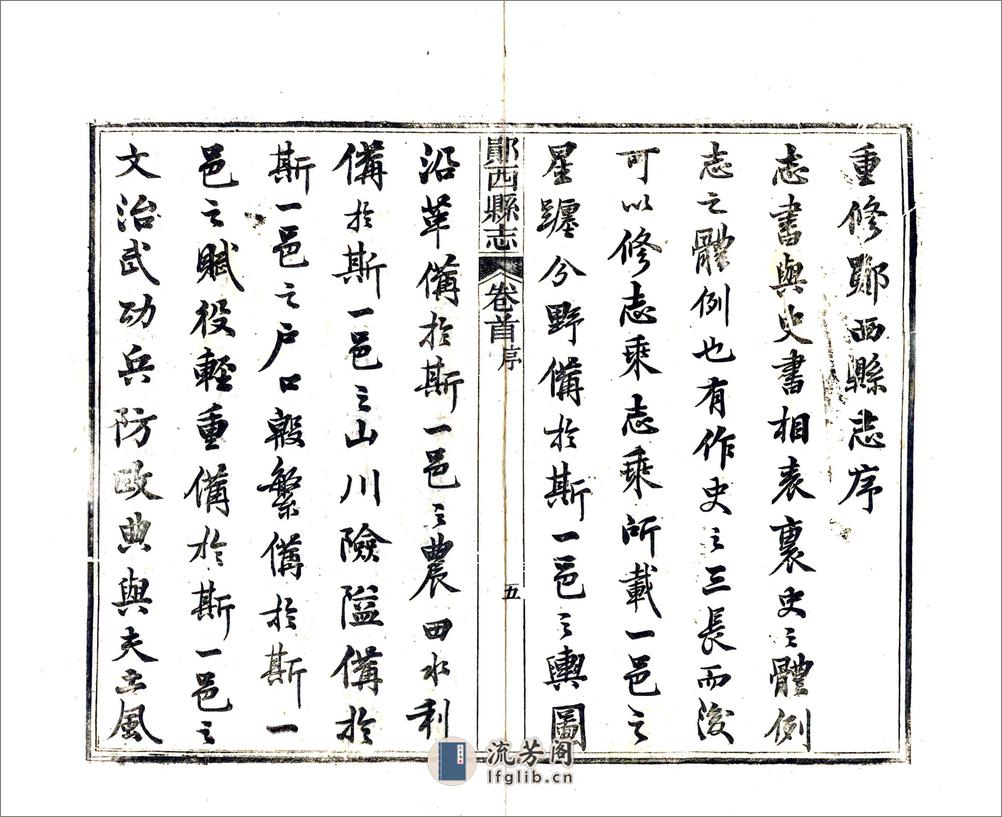 重修鄖西縣志序
志書與史書相表裏史之體例
志之體例也有作史之三長而後
可以修志乘志乘所載一邑之
星躔分野備於斯一邑之輿圖
鄖西縣志
卷首
序
五
沿革備於斯一邑之農田水利
備於斯一邑之山川險隘備於
斯一邑之戶口殷繁備於斯一
邑之賦役輕重備於斯一邑之
文治武功兵防政典與夫土風
流芳阁
lfglib.cn